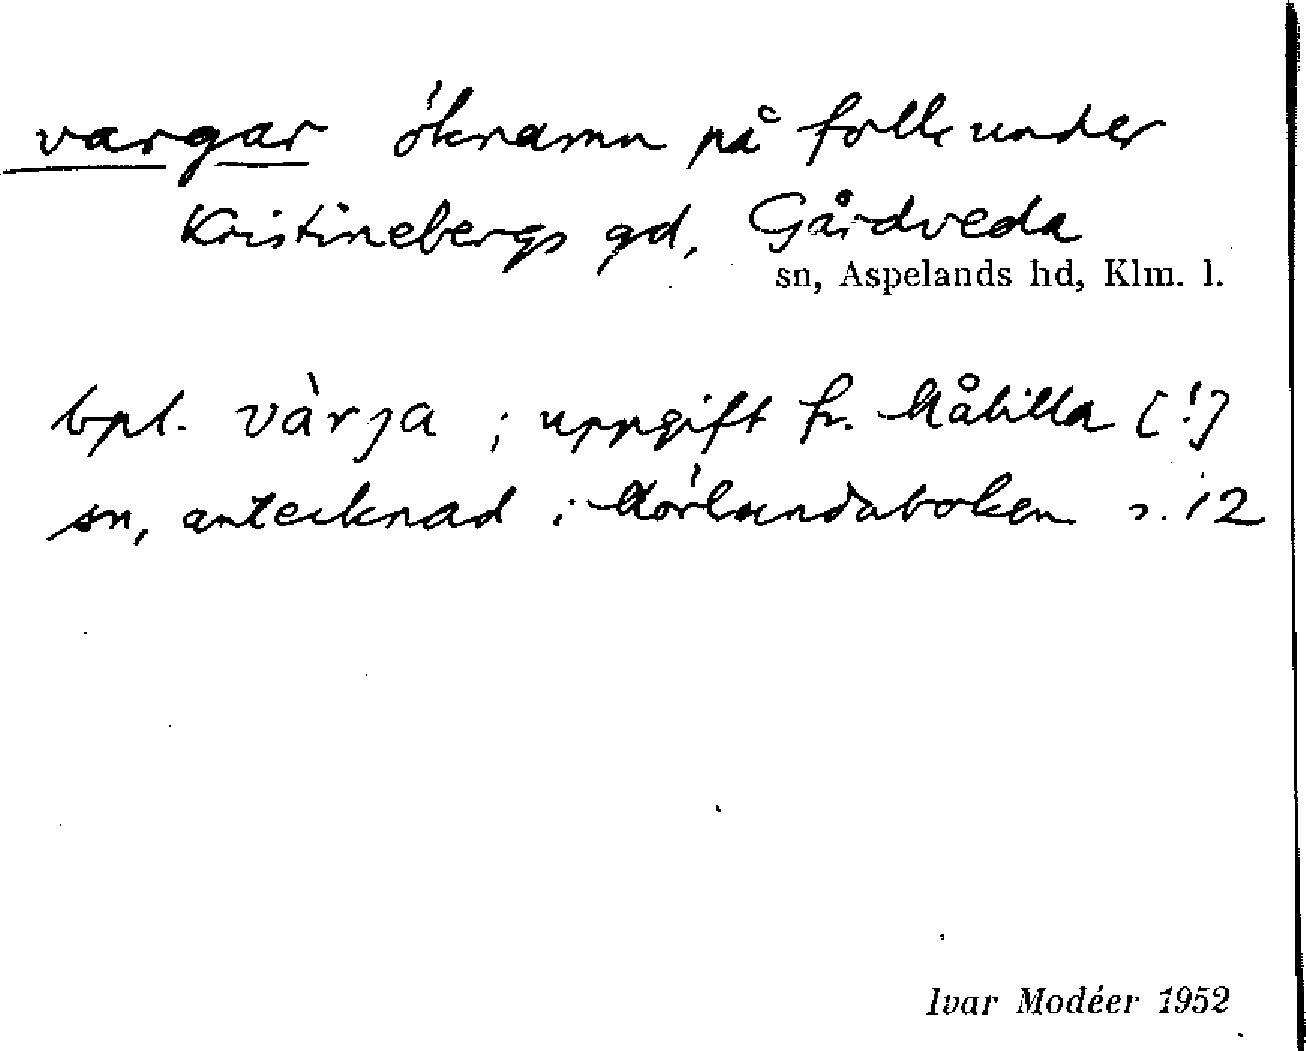 vargar öknamn på folk under
Kristinebergs gd, Gårdveda
sn, Aspelands hd, Klm. l.
bpl. vàrja ; uppgift fr. Målilla [!]
sn, antecknad i Mörlundaboken s. 12
Ivar Modéer 1952